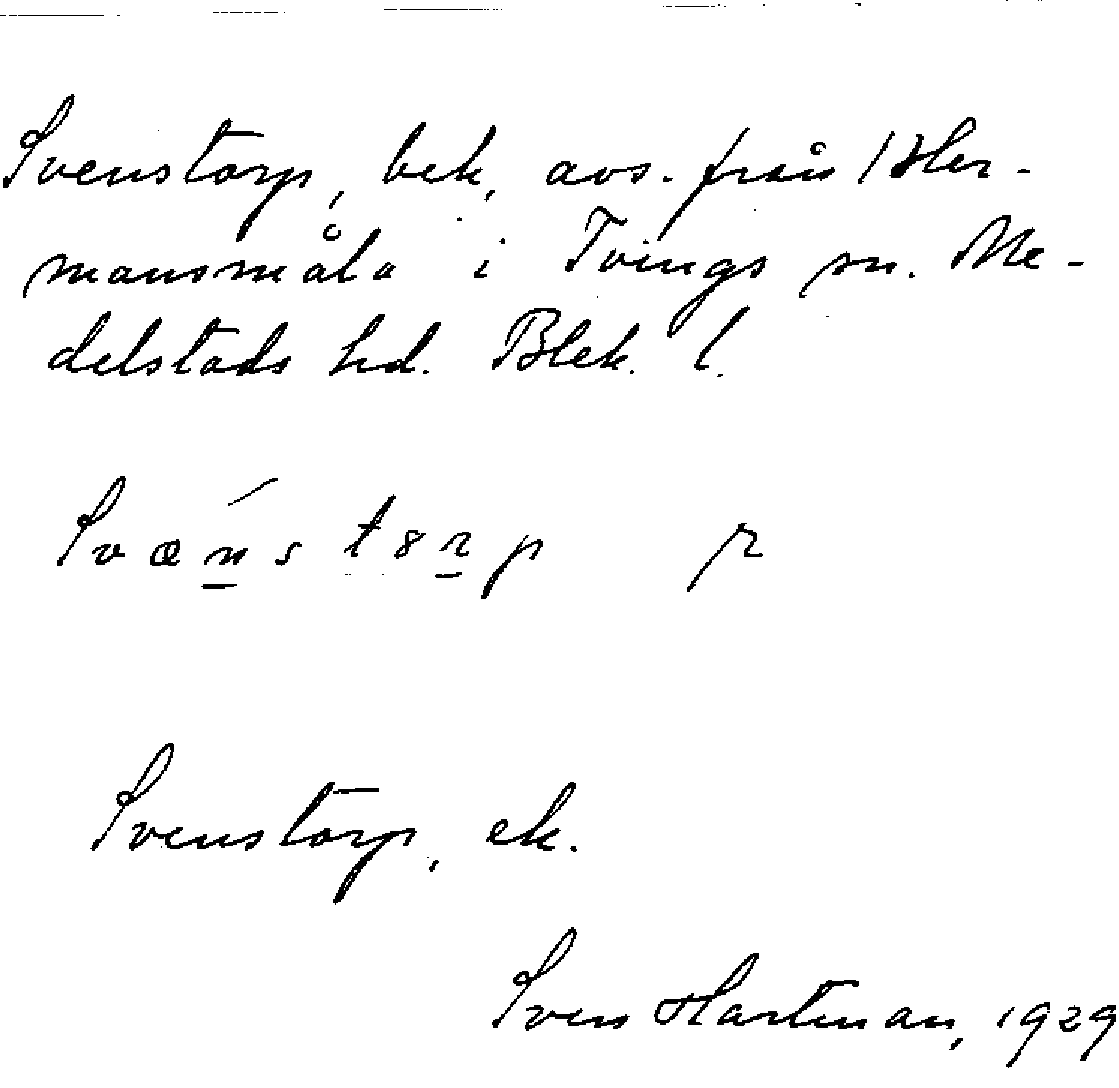 Svenstorp, bek, avs. från 1 Her-
mansmåla i Tvings sn. Me-
delstads hd. Blek. l.
Svǽn̲s tor̲p
Svenstorp, ek.
Sven Hartman, 1929